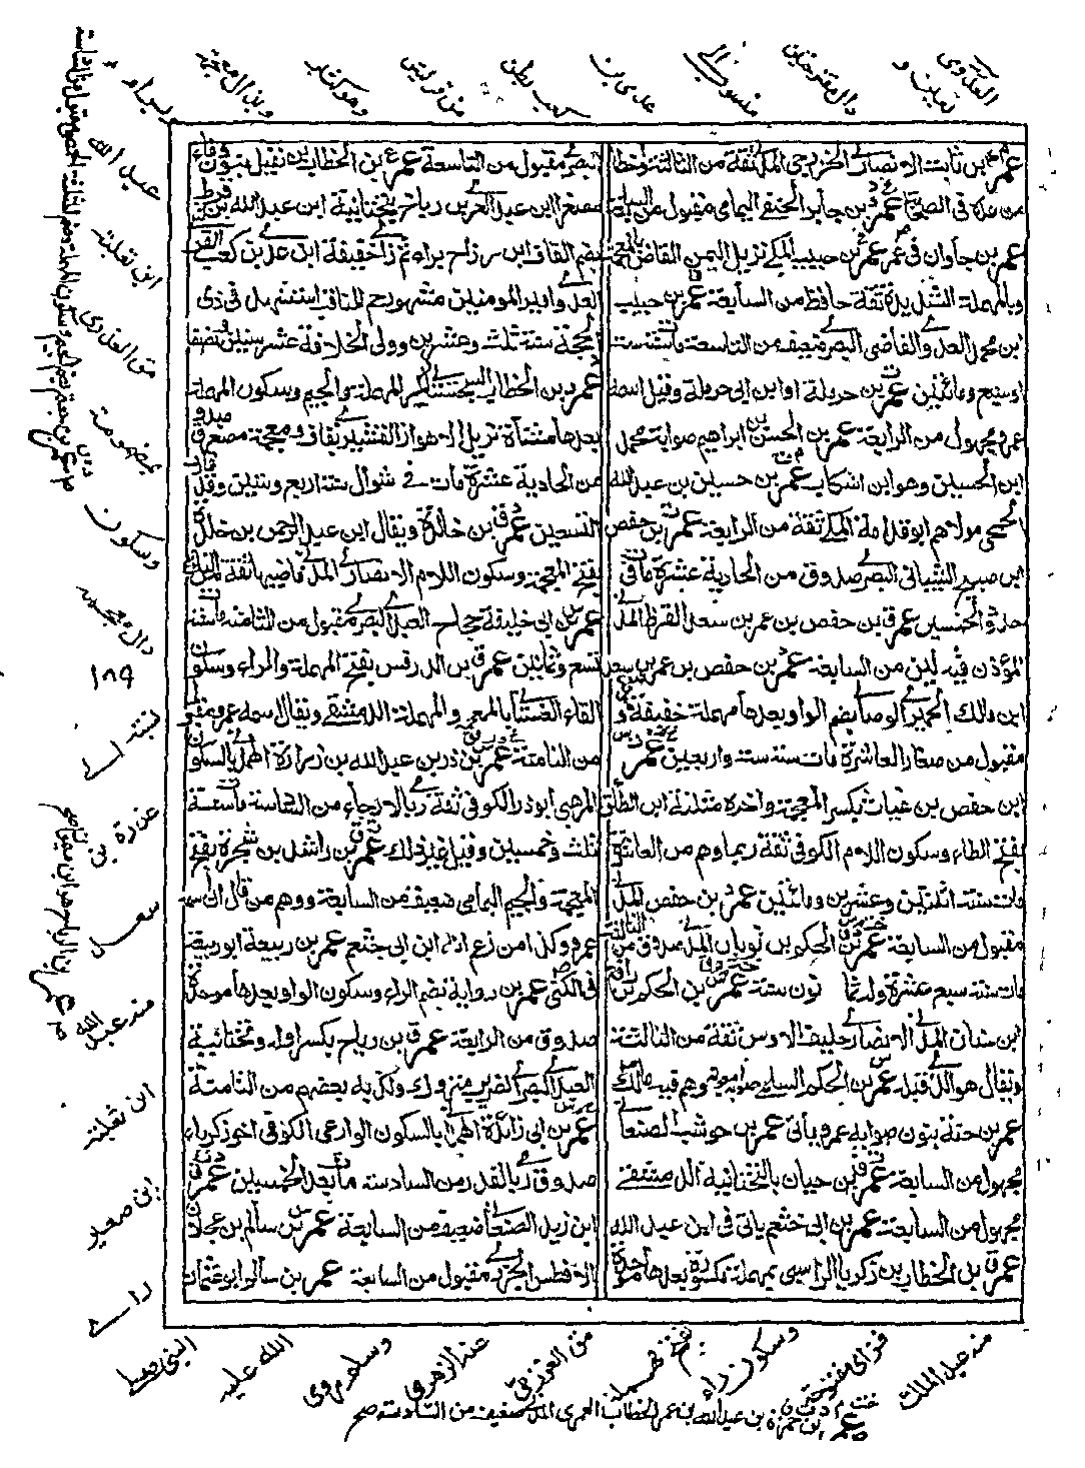 عمر بن ثابت الانصاري الخزرجي المدني ثقة من الثالثة وأخطأ
من عده في الصحابة عمر بن جابر الحنفي اليمامي مقبول من السابعة
عمر بن جاوان في عمرو عمر بن حبيب المكي نزيل اليمن القاص
وبالمهملة ثقة حافظ من السابعة عمر بن حبيب
ابن محمد العدوي القاضي البصري ضعيف من التاسعة مات سنة ست
اوسبع ومائتين عمر بن حرملة او ابن ابي حرملة وقيل اسمه
عمرو مجهول من الرابعة عمر بن الحسن بن ابراهيم صوابه محمد
ابن الحسين وهو ابن اشكاب عمر بن حسين بن عبد الله
الجمحي مولاهم ابو قدامة المكي ثقة من الرابعة عمر بن حفص
ابن صبيح الشيباني البصري صدوق من الحادية عشرة مات في
حدود الخمسين عمر بن حفص بن عمر بن سعد القرظ المدني
المؤذن فيه لين من السابعة عمر بن حفص بن عمر بن سعد
ابن مالك الحميري الوصابي بضم الواو بعدها مهملة خفيفة
مقبول من صغار العاشرة مات سنة ست واربعين عمر
ابن حفص بن غياث بكسر المعجمة واخره مثلثة ابن الطلق
بفتح الطاء وسكون اللام الكوفي ثقة ربما وهم من العاشرة
مات سنة اثنتين وعشرين ومائتين عمر بن حفص المدني
مقبول من السابعة عمر بن الحكم بن ثوبان المدني صدوق من الثالثة
مات سنة سبع عشرة وله ثمانون سنة عمر بن الحكم بن رافع
ابن سنان المدني الانصاري حليف الاوس ثقة من الثالثة
ويقال هو الذي قبله عمر بن الحكم السلمي صوابه معوية وهم فيه مالك
عمر بن حنة بنون صوابه عمرو يأتي عمر بن حوشب الصنعاني
مجهول من السابعة عمر بن حيان بالتحتانية الدمشقي
مجهول من السابعة عمر بن ابي خثعم ياتي في ابن عبد الله
عمر بن الخطاب بن زكريا الراسبي بمهملة مكسورة بعدها موحدة
البصري مقبول من التاسعة عمر بن الخطاب بن نفيل بنون وفاء
مصغرا ابن عبد العزى بن رياح بتحتانية ابن عبد الله بن قرط
بضم القاف ابن رزاح براء ثم زاي خفيفة ابن عدي بن كعب القرشي
العدوي امير المومنين مشهور جم المناقب استشهد في ذي
الحجة سنة ثلث وعشرين وولي الخلافة عشر سنين ونصفا
عمر بن الخطاب السجستاني بكسر المهملة والجيم وسكون المهملة
بعدها مثناة نزيل الاهواز القشيري بقاف ومعجمة مصغر صدوق
من الحادية عشرة مات في شوال سنة اربع وستين وقد قارب
التسعين عمر بن خلدة ويقال ابن عبد الرحمن بن خلدة
بفتح المعجمة وسكون اللام الانصاري المدني قاضيها ثقة من الثالثة
عمر بن ابي خليفة حجاج العبدي البصري مقبول من الثامنة مات سنة
تسع وثمانين عمر بن الدرفس بفتح المهملة والراء وسكون
الفاء الغساني بالمعجمة والمهملة الدمشقي ويقال اسمه عمرو مقبول
من الثامنة عمر بن ذر بن عبد الله بن زرارة الهمداني بالسكون
المرهبي ابو ذر الكوفي ثقة رمي بالارجاء من السادسة مات سنة
ثلث وخمسين وقيل غير ذلك عمر بن راشد بن شجرة بفتح
المعجمة والجيم اليمامي ضعيف من السابعة ووهم من قال ان اسمه
عمرو وكذا من زعم انه ابن ابي خثعم عمر بن ربيعة ابو ربيعة
في الكنى عمر بن روبة بضم الراء وسكون الواو بعدها موحدة
صدوق من الرابعة عمر بن رياح بكسر اوله وتحتانية
العبدي البصري الضرير متروك وكذبه بعضهم من الثامنة
عمر بن ابي زائدة الهمداني بالسكون الوادعي الكوفي اخو زكرياء
صدوق رمي بالقدر من السادسة مات بعد الخمسين عمر
ابن زيد الصنعاني ضعيف من السابعة عمر بن سالم بن عجلان
الافطس الجزري مقبول من السابعة عمر بن سالم ابو عثمان
العدوي
منسوب الى
عدي بن
كعب بطن
من قريش
عبد الله
ابن ثعلبة
مق العذري
بمضمومة
وسكون
دال معجمة
١٨٩
نسبة الى
عذرة بن
سعد
منه عبد الله
ابن ثعلبة
ابن صعير
النبي صلى
الله عليه
وسلم روى
عنه الزهري
وسكون زاء
منه عبد الملك
عمر بن حمزة بن عبد الله بن عمر بن الخطاب العمري المدني ضعيف من السادسة صح